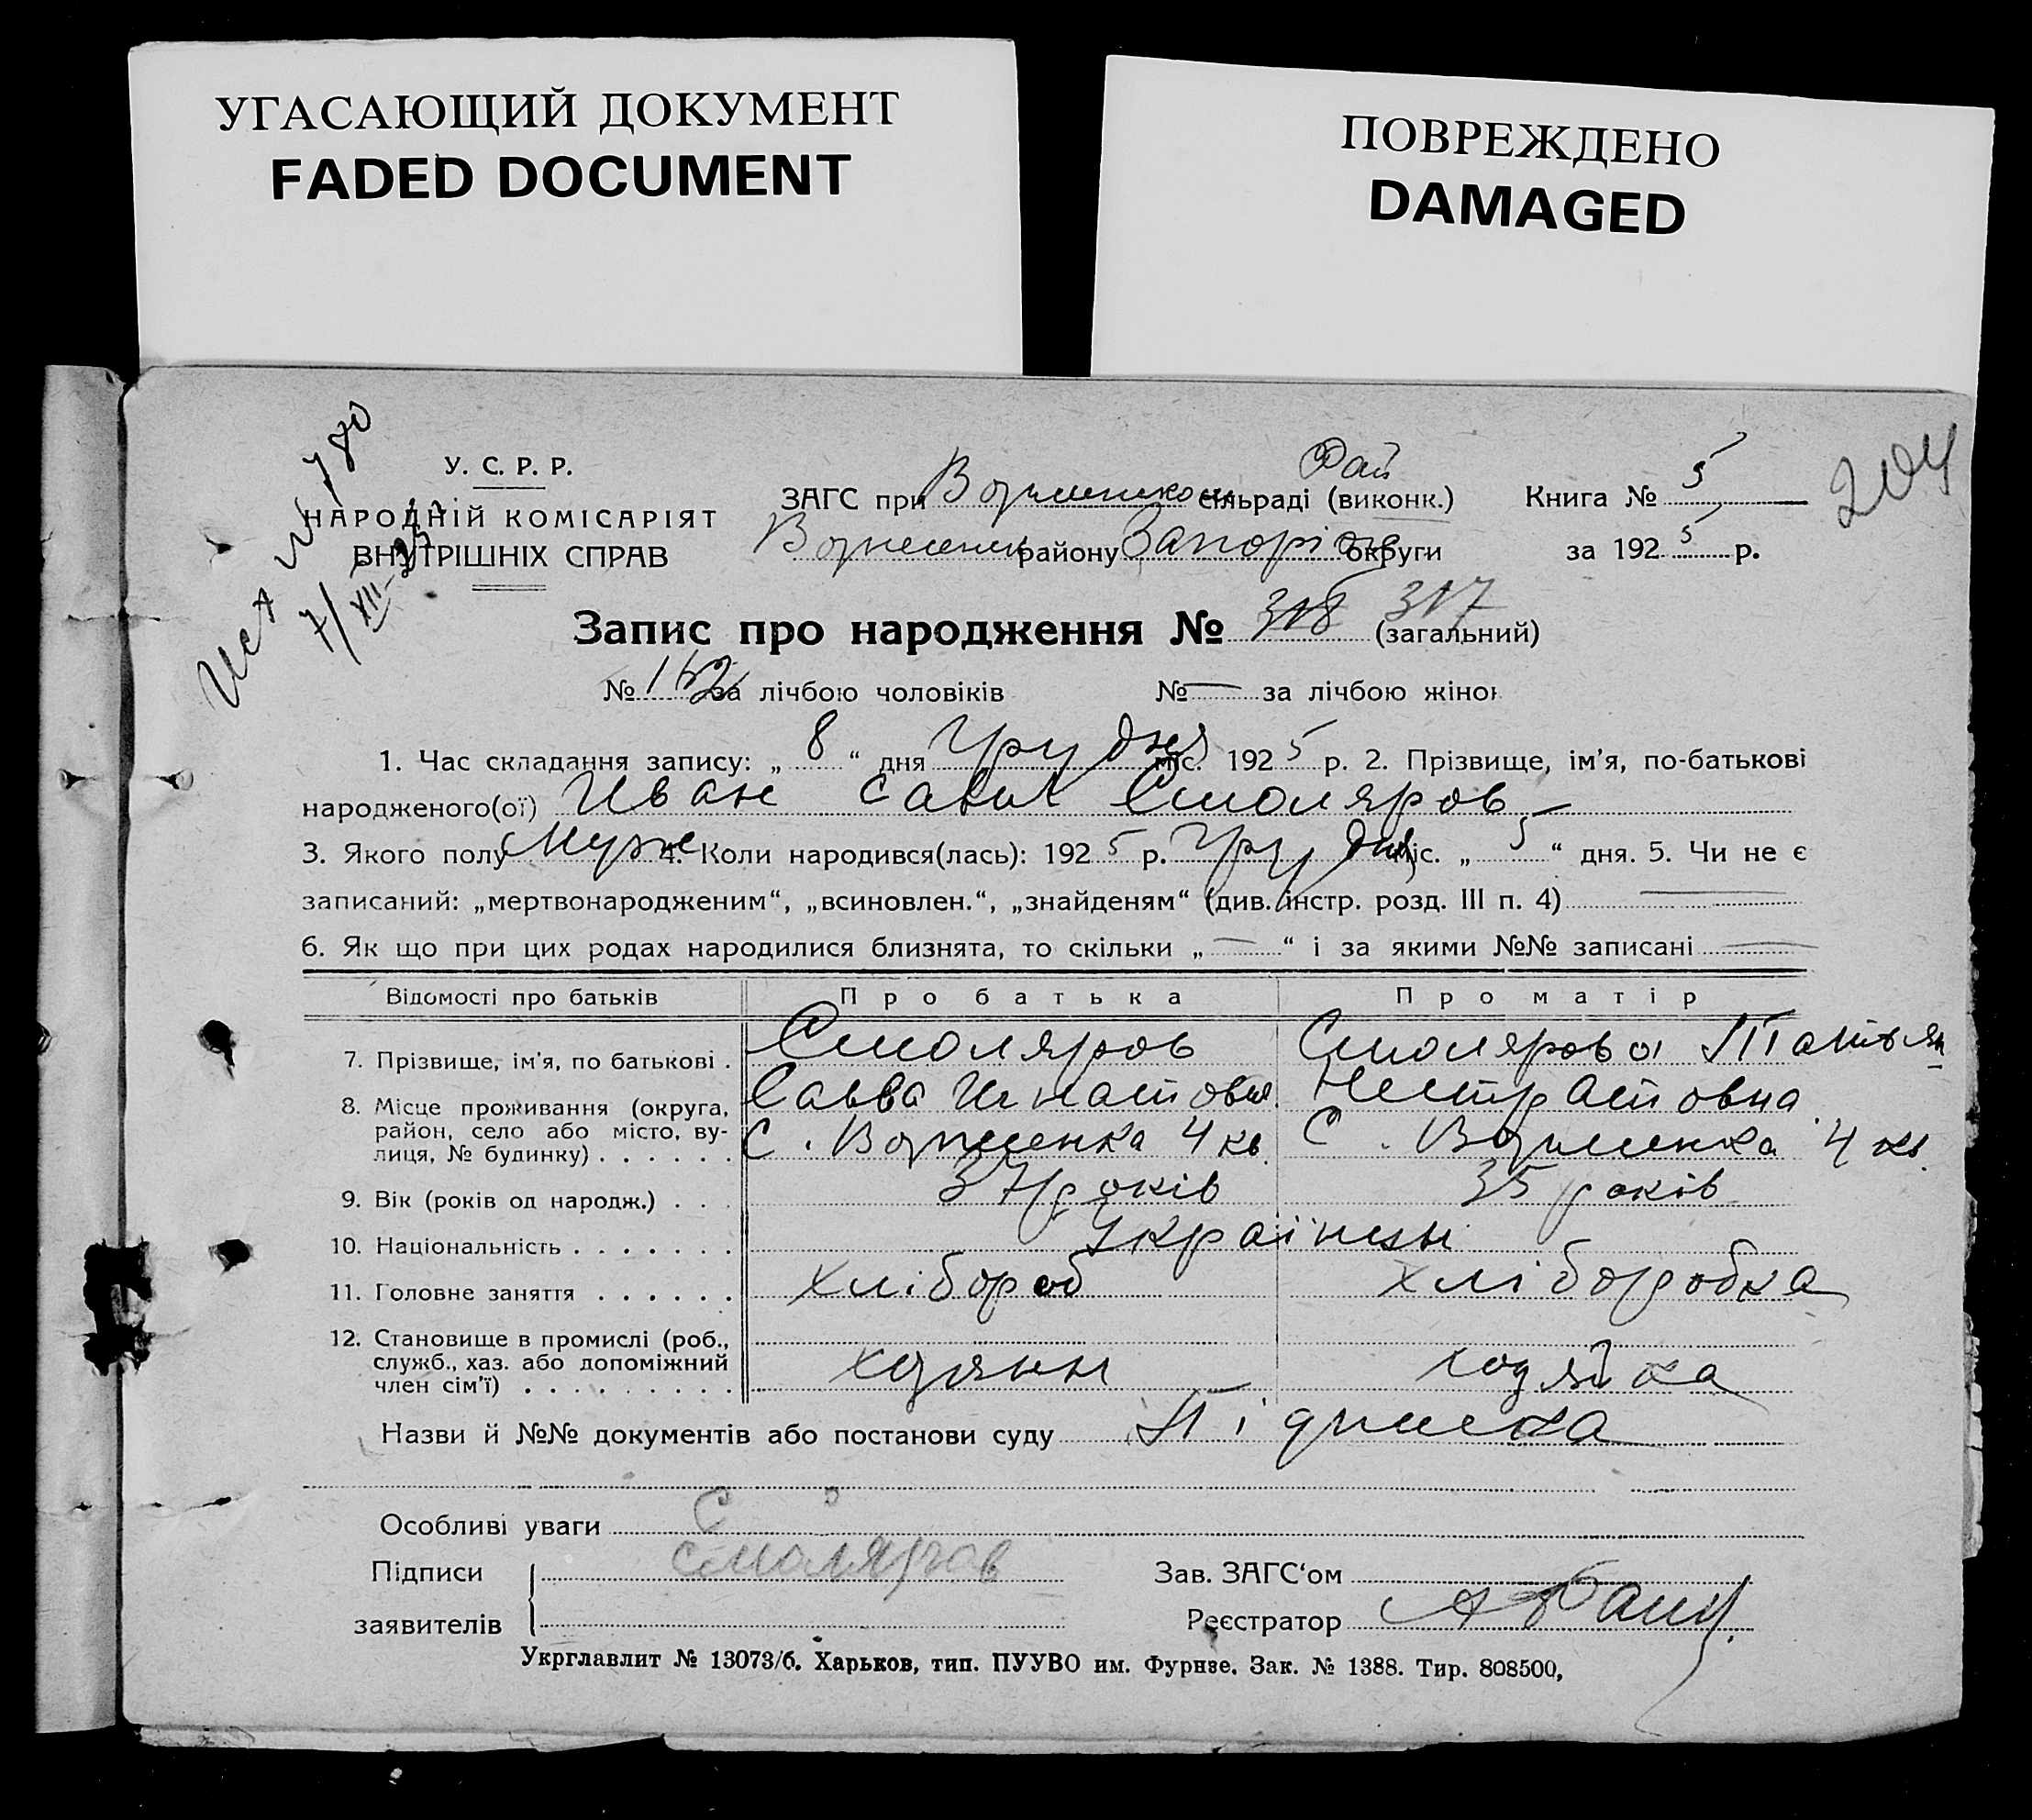 УГАСАЮЩИЙ ДОКУМЕНТ
FADED DOCUMENT
ПОВРЕЖДЕНО
DAMAGED
Исх № 780
7/XII-25
204
У. С. Р. Р.
НАРОДНІЙ КОМІСАРІЯТ
ВНУТРІШНІХ СПРАВ
Рай
ЗАГС при сільраді (виконк.)
району Запоріж округи
Книга № 5
за 192 5 р.
Запис про народження № 318 317 (загальний)
№ 162 за лічбою чоловіків № — за лічбою жінок
1. Час складання запису: „ 8 “ дня Грудня міс. 192 5 р. 2. Прізвище, ім'я, по-батькові
народженого(ої) Иван Савич Смоляров —
3. Якого полу Муже 4. Коли народився(лась): 192 5 р. Грудня міс. „ 5 “ дня. 5. Чи не є
записаний: „мертвонародженим“, „всиновлен.“, „знайденям“ (див. інстр. розд. III п. 4) —
6. Як що при цих родах народилися близнята, то скільки „ — “ і за якими №№ записані —
Відомості про батьків Про батька Про матір
7. Прізвище, ім'я, по батькові . Смоляров Смолярова Татьян
8. Місце проживання (округа, Савва Игнатович
район, село або місто, ву-
лиця, № будинку) . . . . . . С. Вознесенка 4 кв. С. Вознесенка 4 кв.
9. Вік (років од народж.) . . . 37 років 35 років
10. Національність . . . . . . . Українцы
11. Головне заняття . . . . . . хлібороб хліборобка
12. Становище в промислі (роб.,
служб., хаз. або допоміжний
член сім'ї) . . . . . . . . .
Назви й №№ документів або постанови суду Підписка
Особливі уваги С
Підписи Смоляров
заявителів
Зав. ЗАГС‘ом
Реєстратор
Укрглавлит № 13073/б. Харьков, тип. ПУУВО им. Фрунзе. Зак. № 1388. Тир. 808500,